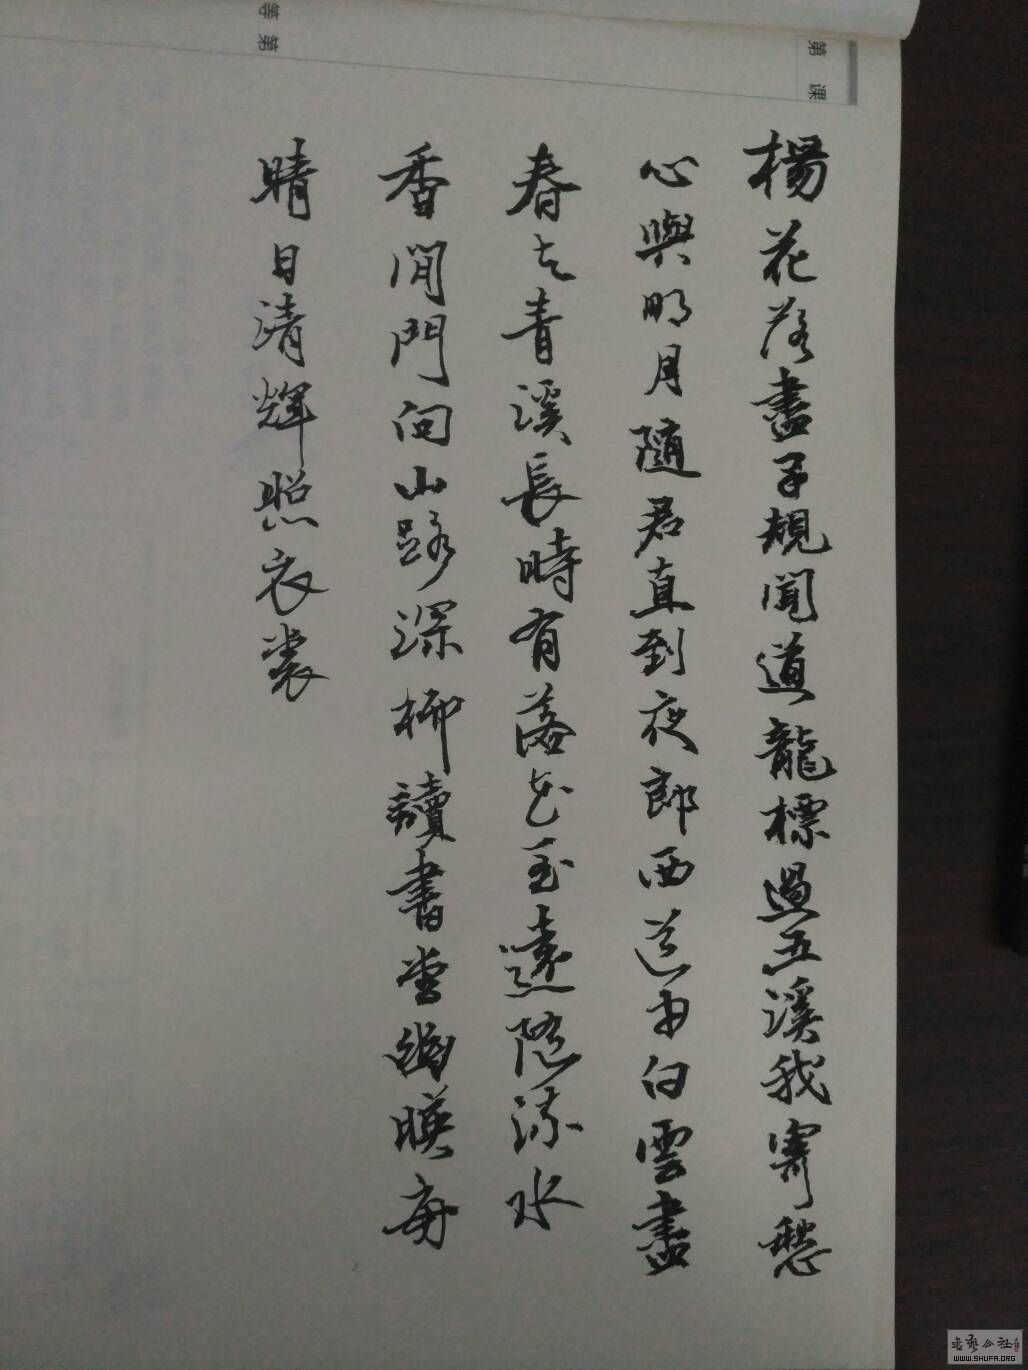 第 课
等第
楊花落盡子規聞道龍標過五溪我寄愁
心與明月隨君直到夜郎西道由白雲盡
春与青溪長時有落花至遠隨流水
香閒門向山路深柳讀書堂幽暎每
晴日清輝照衣裳
书艺公社
WWW.SHUFA.ORG